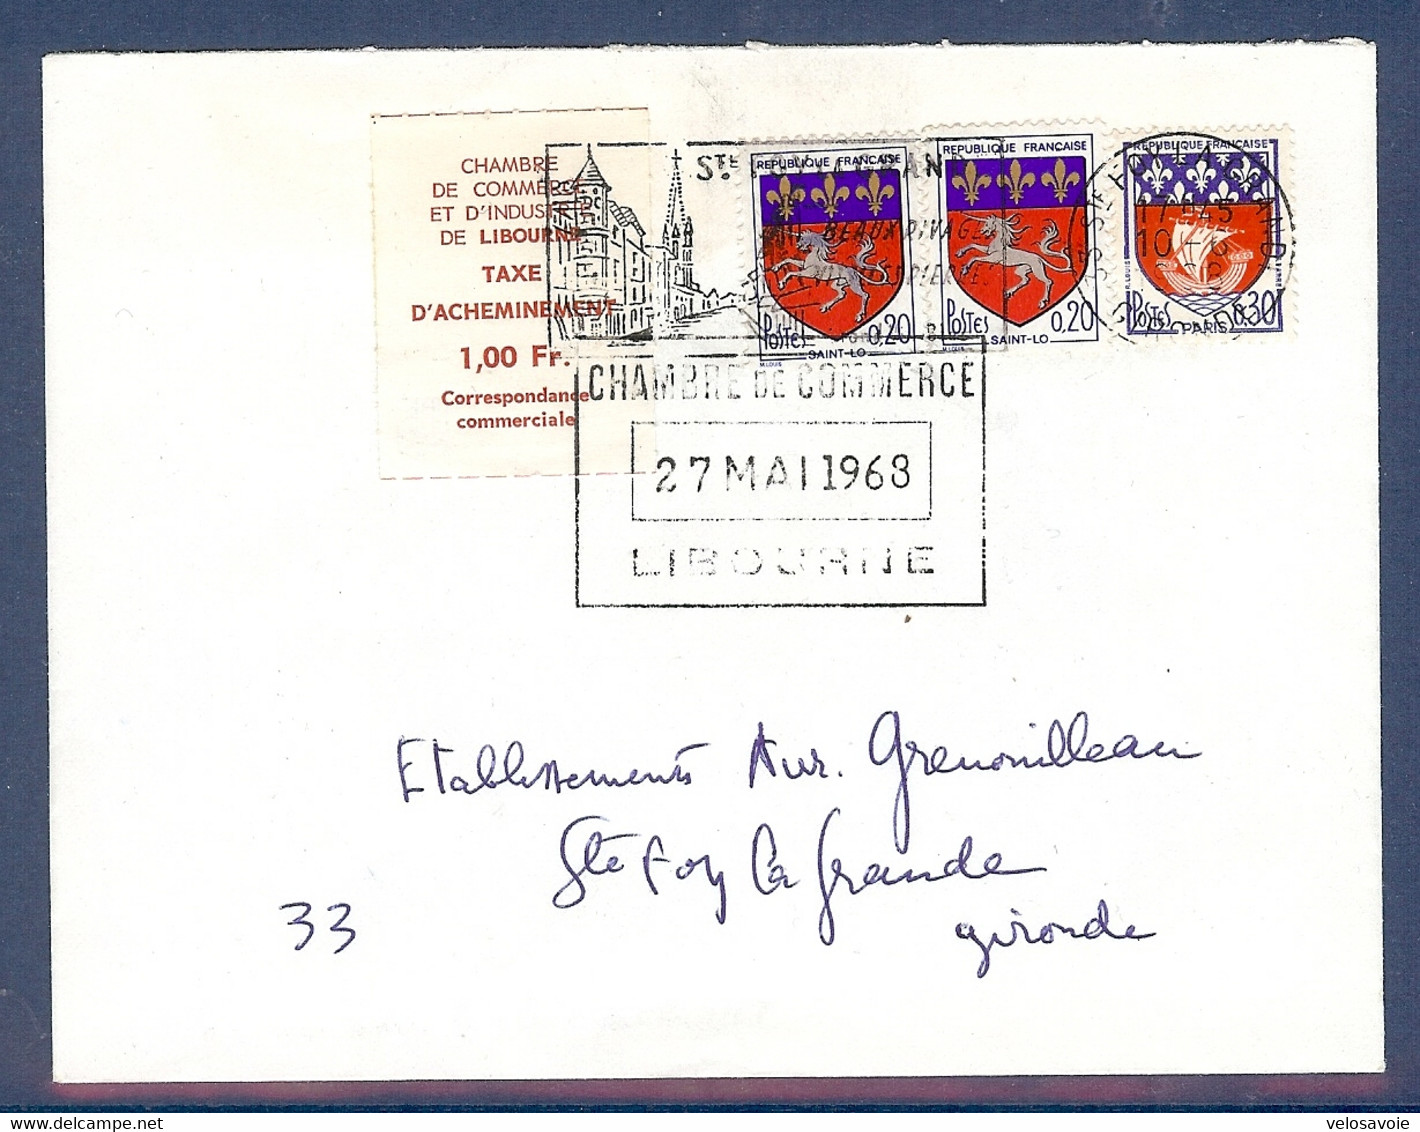 CHAMBRE
DE COMMERCE
ET D'INDUSTRIE
DE LIBOURNE
TAXE
D'ACHEMINEMENT
1,00 Fr.
Correspondance
commerciale
REPUBLIQUE FRANÇAISE
POSTES 0,20
SAINT-LO
REPUBLIQUE FRANÇAISE
POSTES 0,20
SAINT-LO
REPUBLIQUE FRANÇAISE
POSTES 0,30
PARIS
17H45
10-6
CHAMBRE DE COMMERCE
27 MAI 1968
LIBOURNE
Etablissements Aur. Grenouilleau
Ste Foy la Grande
33
gironde
delcampe.net
velosavoie